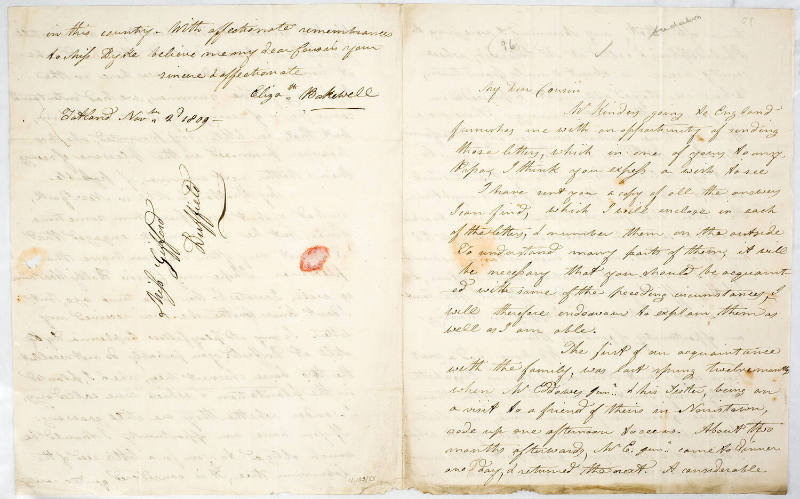 in this country. With affectionate remembrances
to Miss Dyke believe me my dear Cousin your
sincere & affectionate
Eliza.th Bakewell
Fatland Nov.br 2.d 1809 -
Miss Gifford
Duffield
96
Audubon
My Dear Cousin
Mr Kinders going to England
furnishes me with an opportunity of sending
those letters, which in one of yours to my
Papa, I think you express a wish to see
I have sent you a copy of all the answers
I can find, which I will inclose in each
of the letters, & number them on the outside
To understand many parts of them, it will
be necessary that you should be acquaint
ed with some of the preceding circumstances, I
will therefore endeavour to explain them as
well as I am able.
The first of our acquaintance
with the family, was last spring twelvemonth
when Mr Eddowes jun.r & his sister, being on
a visit to a friend of theirs in Norristown,
rode up one afternoon to see us. About two
months afterwards, Mr E. jun.r came to dinner
one day, & returned the next. A considerable